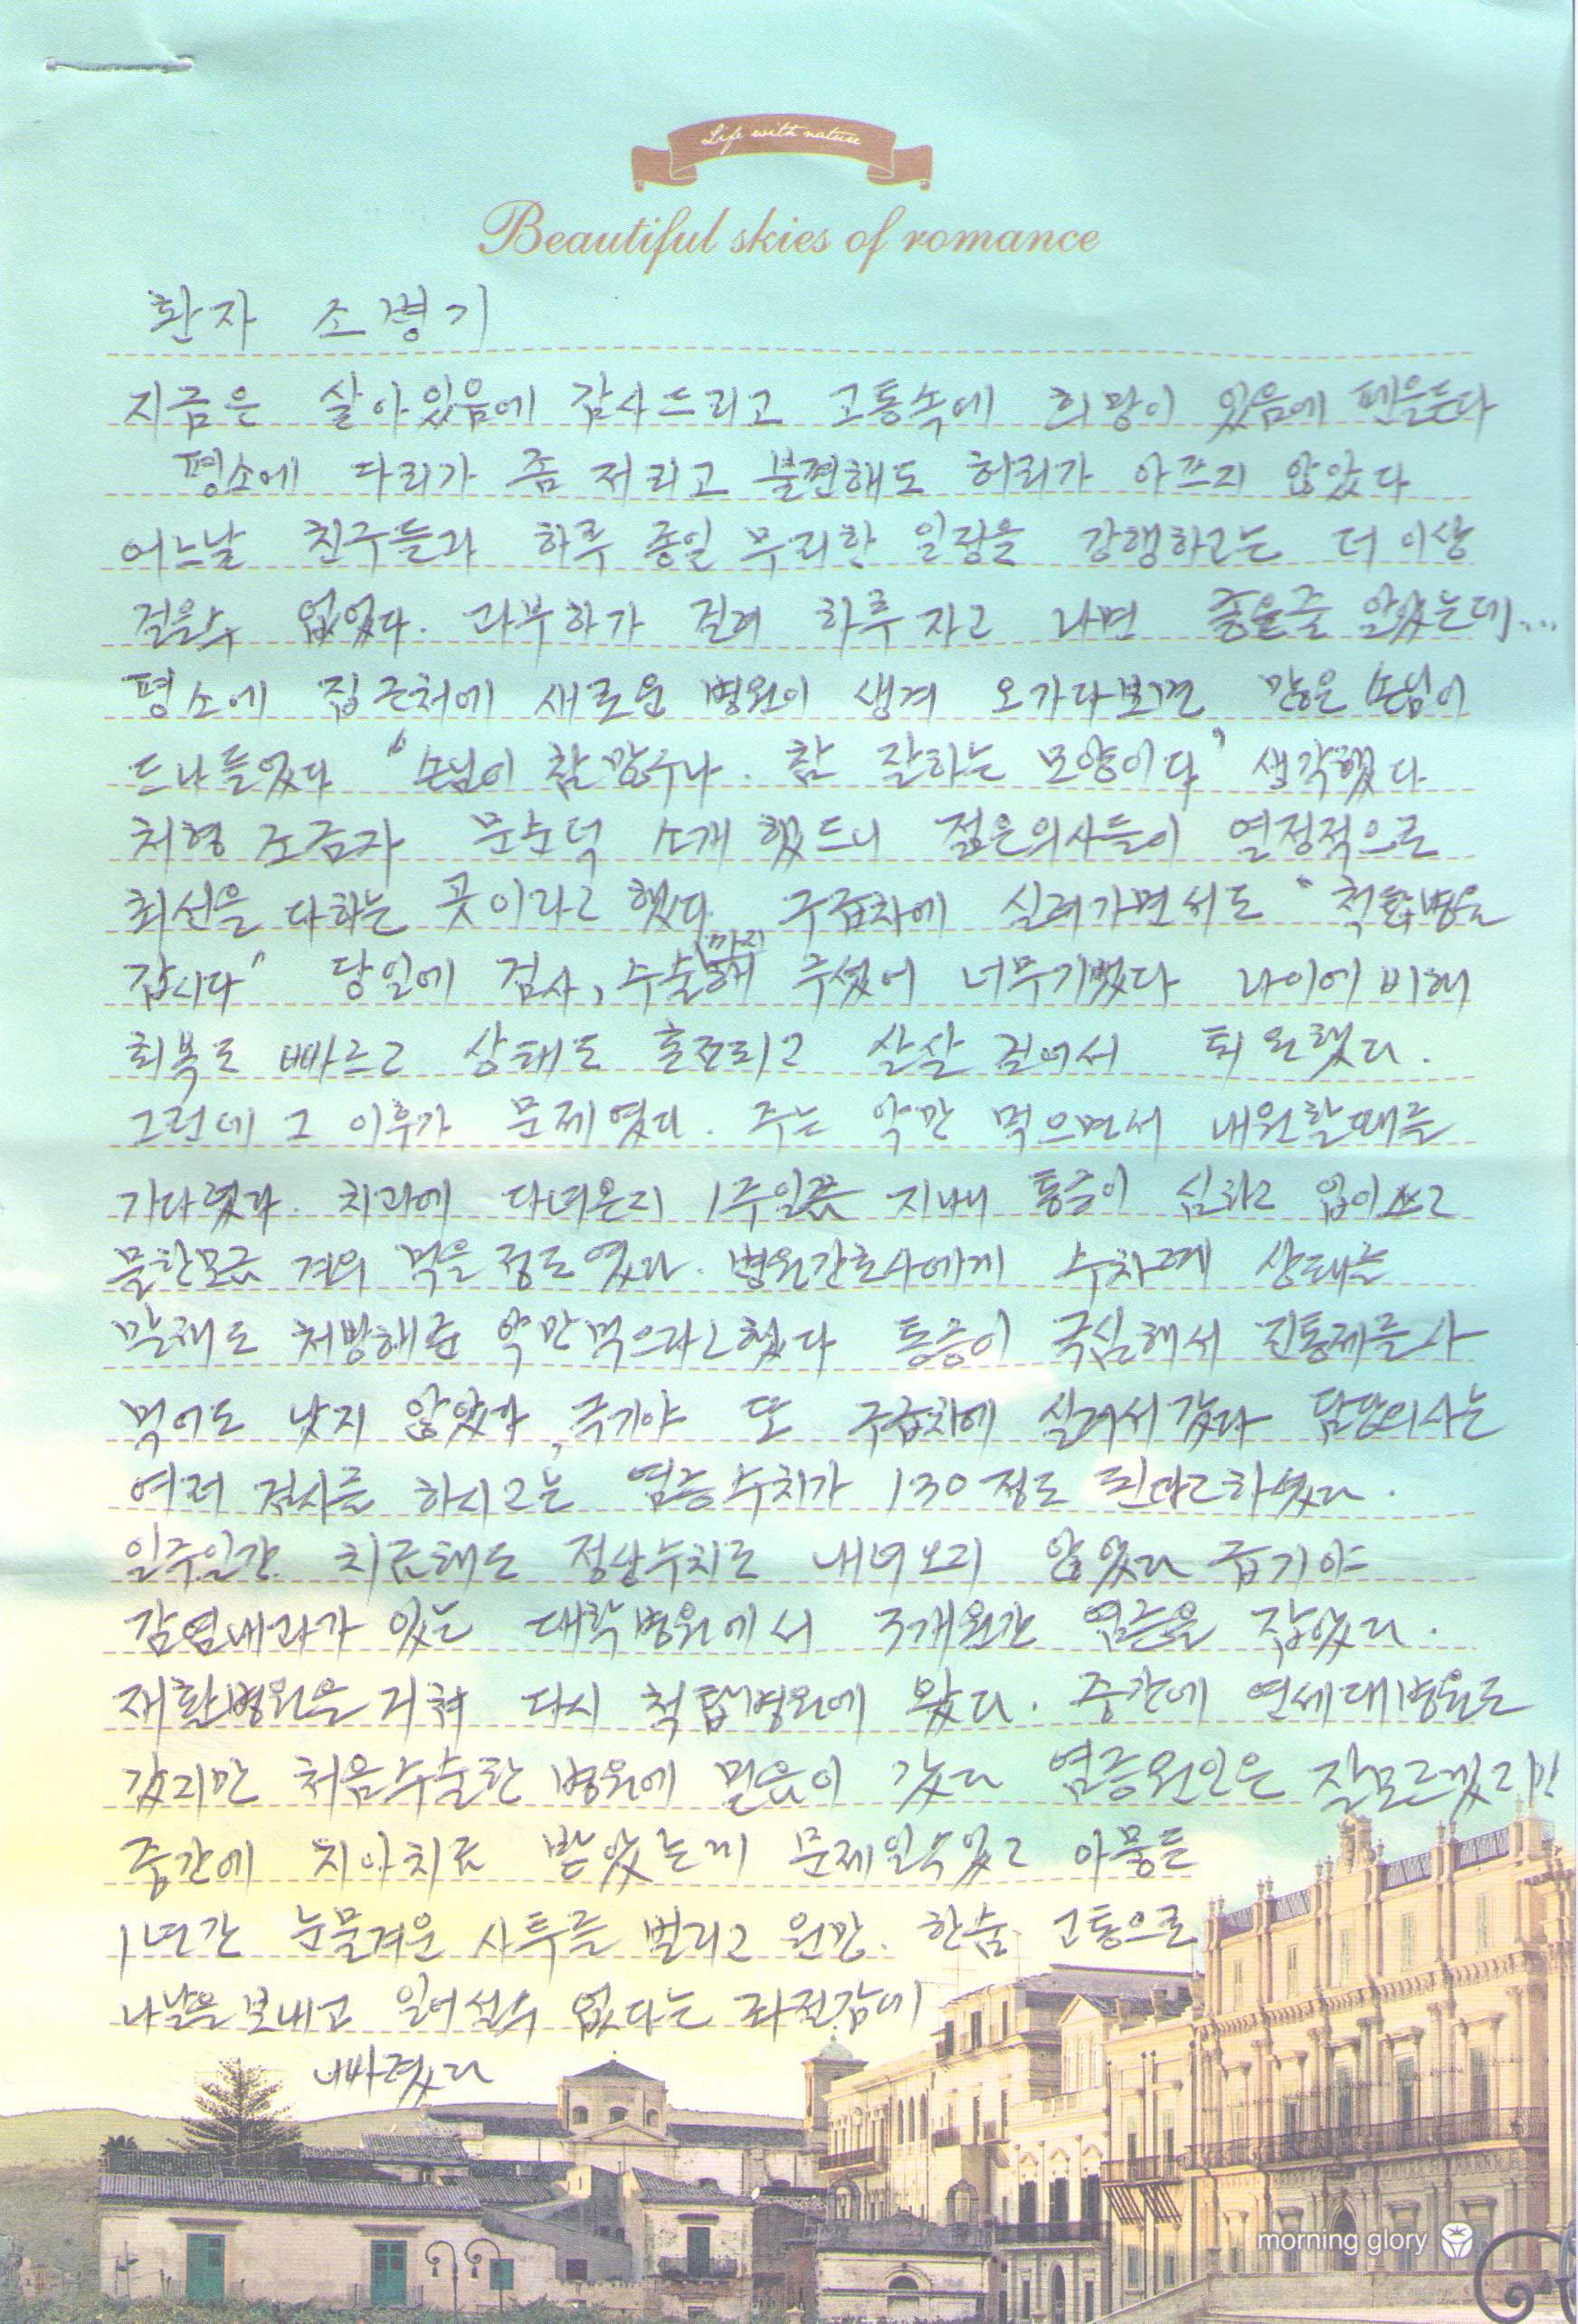 Life with nature
Beautiful skies of romance
환자 조병기
지금은 살아있음에 감사드리고 고통속에 희망이 있음에 펜을든다
평소에 다리가 좀 저리고 불편해도 허리가 아프지 않았다
어느날 친구들과 하루 종일 무리한 일정을 강행하고는 더 이상
걸을수 없었다. 과부하가 걸려 하루 자고 나면 좋을줄 알았는데...
평소에 집근처에 새로운 병원이 생겨 오가다보면 많은 손님이
드나들었다 "손님이 참 많구나. 참 잘하는 모양이다" 생각했다
처형 조금자 문순덕 소개 했드니 젊은의사들이 열정적으로
최선을 다하는 곳이라고 했다. 구급차에 실려가면서도 "척탑병원
갑시다" 당일에 검사, 수술까지해 주셨어 너무기뻤다 나이에 비해
회복도 빠르고 상태도 호전되고 살살 걸어서 퇴원했다.
그런데 그 이후가 문제였다. 주는 약만 먹으면서 내원할때를
기다렸다. 치과에 다녀온지 1주일쯤 지나니 통증이 심하고
물한모금 겨우 먹을 정도였다. 병원간호사에게 수차례 상태를
말해도 처방해준 약만먹으라고했다 통증이 극심해서 진통제를사
먹어도 낫지 않았다, 급기야 또 구급차에 실려서갔다 담당의사는
여러 검사를 하시고는 염증수치가 130정도 된다고하셨다.
일주일간 치료해도 정상수치로 내려오지 않았다 급기야
감염내과가 있는 대학병원에서 3개월간 염증을 잡았다.
재활병원을 거쳐 다시 척탑병원에 왔다. 중간에 연세대병원도
갔지만 처음수술한 병원에 믿음이 갔다 염증원인은 잘모르겠지만
중간에 치아치료 받았는게 문제일수있고 아뭏든
1년간 눈물겨운 사투를 벌리고 원망. 한숨 고통으로
나날을보내고 일어설수 없다는 좌절감에
빠졌다
morning glory